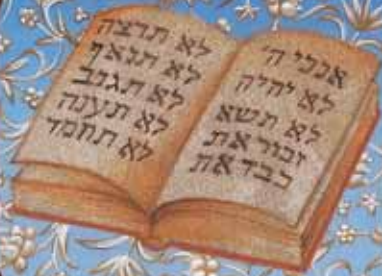 אנכי ה'
לא יהיה
לא תשא
זכור את
כבד את
לא תרצה
לא תנאף
לא תגנב
לא תענה
לא תחמד